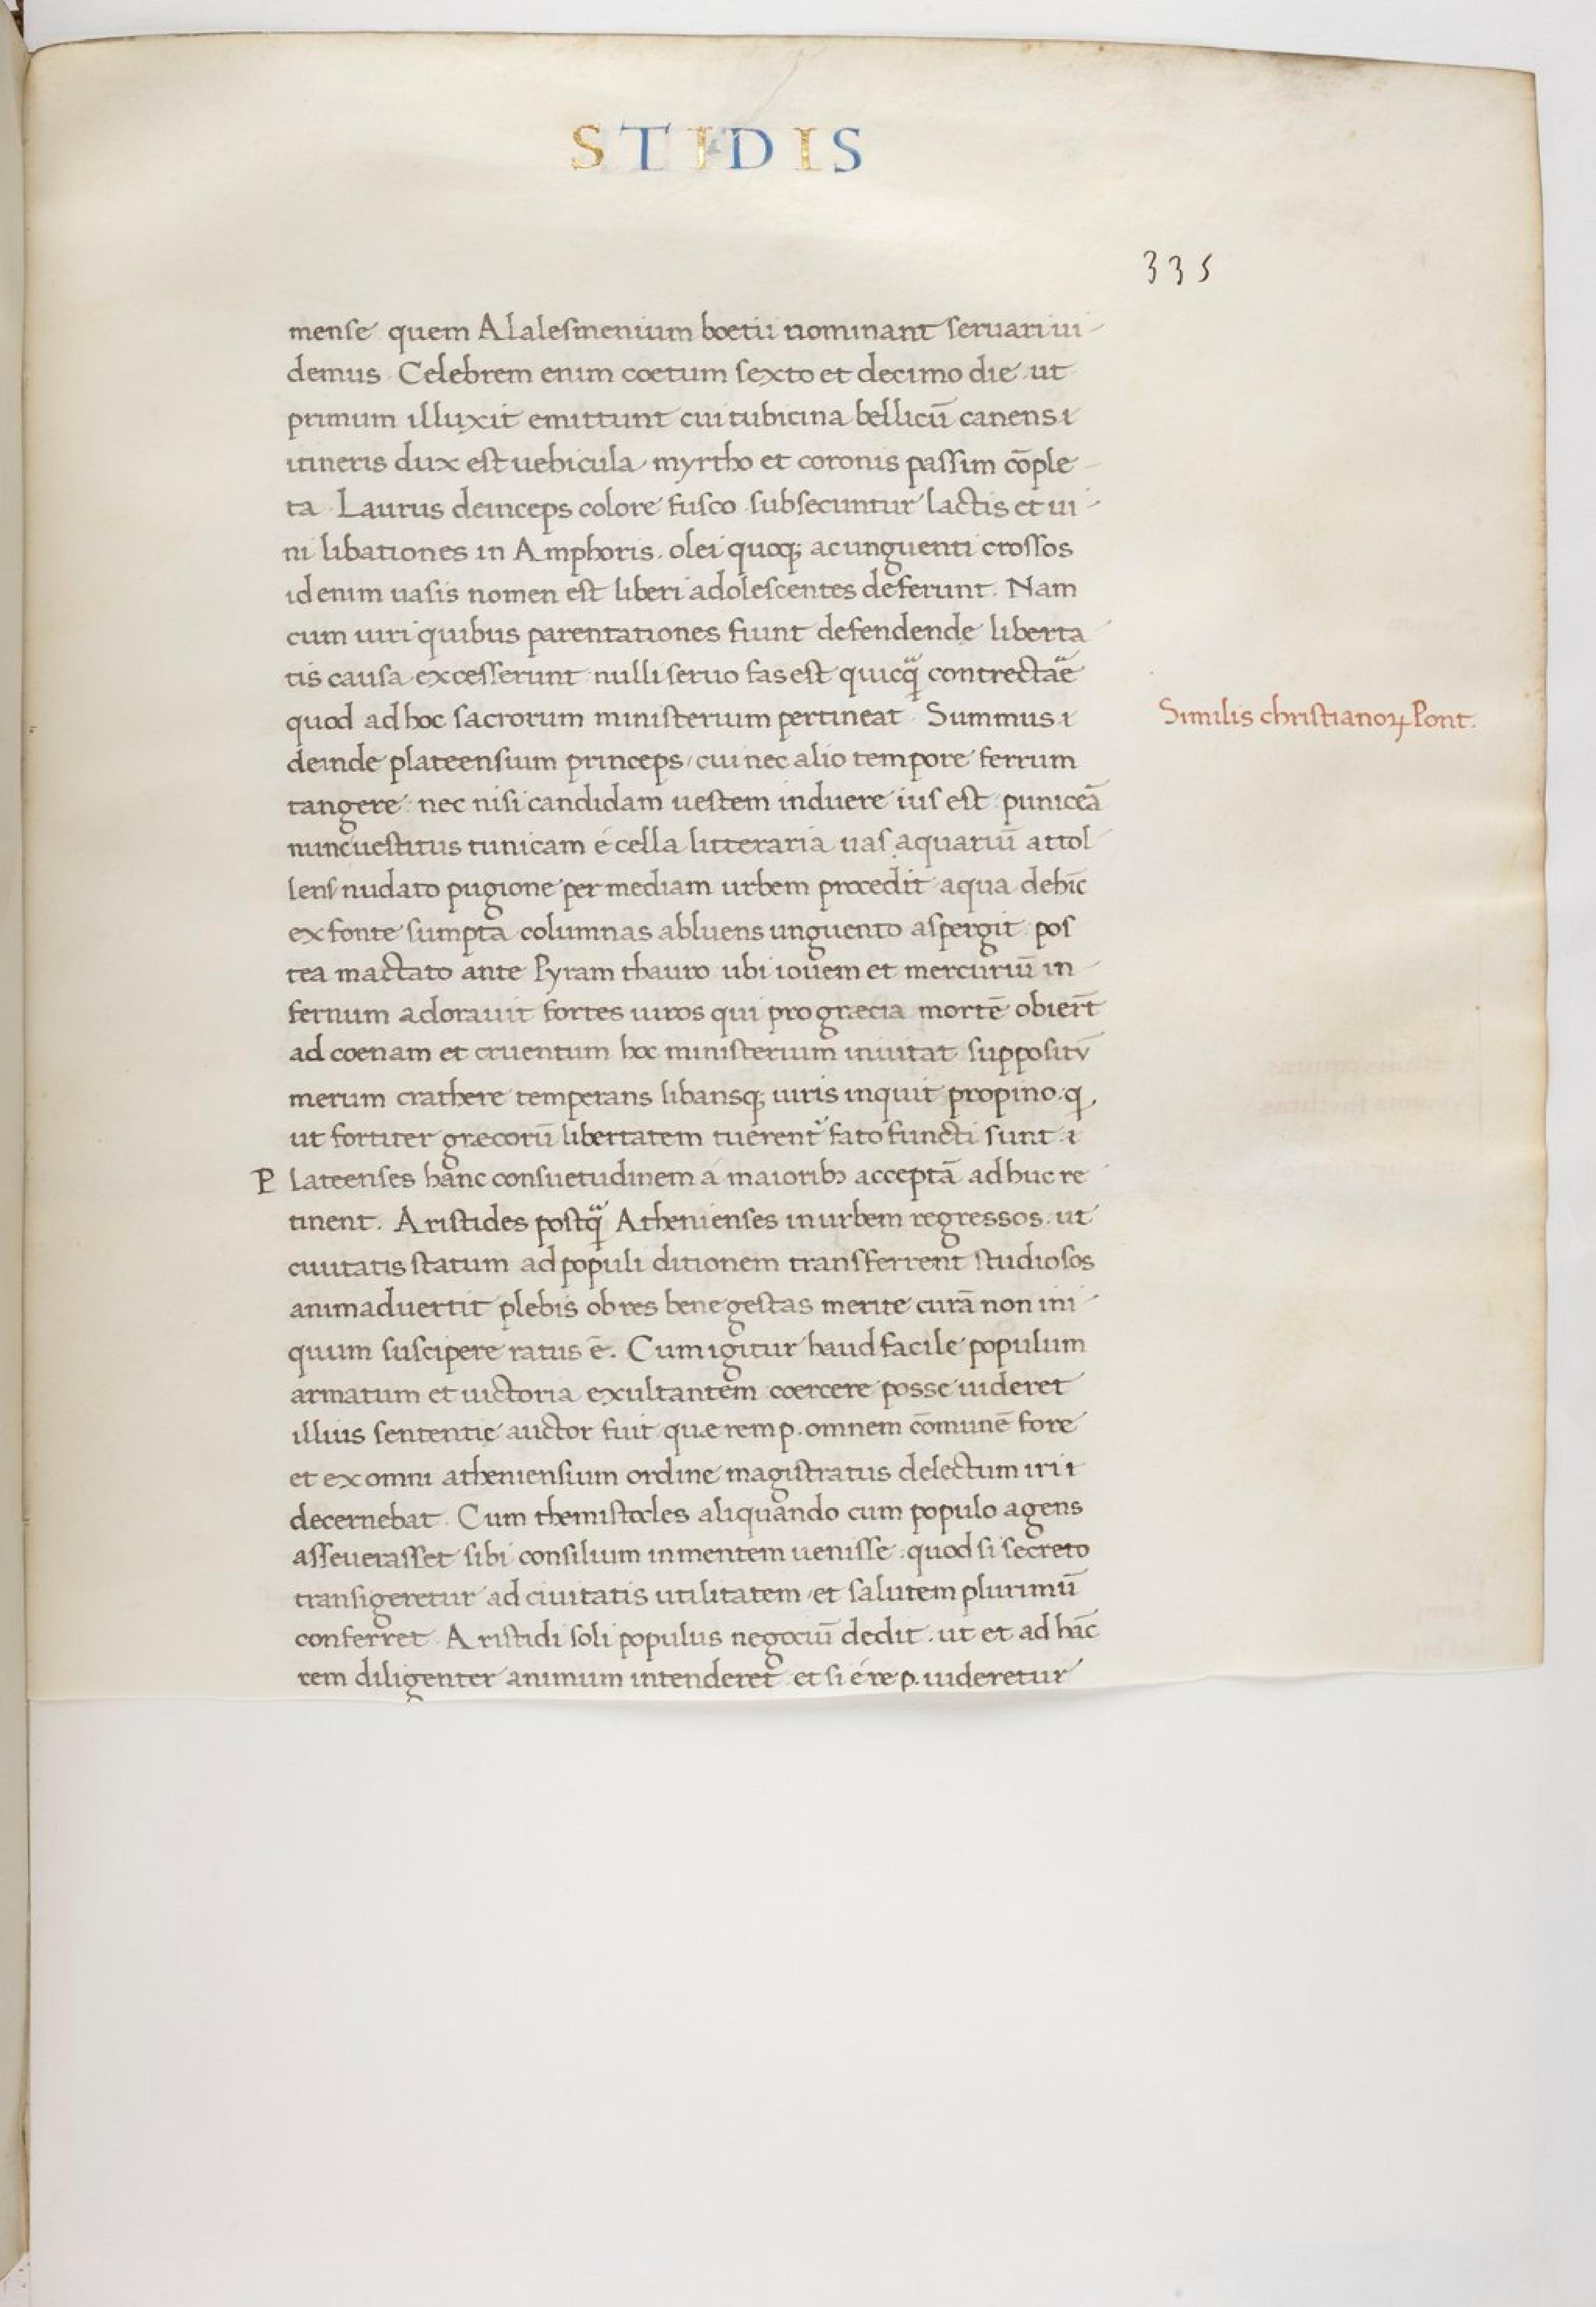 STIDIS
335
mense quem Alalesmenium boetii nominant seruari ui-
demus. Celebrem enim coetum sexto et decimo die ut
primum illuxit emittunt cui tubicina bellicū canens ı
itineris dux est uehicula myrtho et coronis passim cōple-
ta. Laurus deinceps colore fusco subsecuntur lactis et ui-
ni libationes in Amphoris. olei quoq; ac unguenti crossos
id enim uasis nomen est liberi adolescentes deferunt. Nam
cum uiri quibus parentationes fiunt defendende liberta-
tis causa excesserunt nulli seruo fas est quicq̃ contrectãe
quod ad hoc sacrorum ministerium pertineat. Summus ı
Similis christianoꝝ Pont.
deinde plateensium princeps, cui nec alio tempore ferrum
tangere nec nisi candidam uestem induere ius est puniceā
nunc uestitus tunicam é cella litteraria uas aquariū attol-
lens nudato pugione per mediam urbem procedit aqua dehīc
ex fonte sumpta columnas abluens unguento aspergit pos
tea mactato ante Pyram thauro ubi iouem et mercuriū in-
fernum adorauit fortes uiros qui pro græcia mortē obiert̄
ad coenam et cruentum hoc ministerium inuitat suppositū
merum crathere temperans libansq; uiris inquit propino. q
ut fortiter græcorū libertatem tuerent᷑ fato functi sunt. ı
Plateenses hanc consuetudinem á maioribꝫ acceptā adhuc re-
tinent. Aristides postq̃ Athenienses in urbem regressos. ut
ciuitatis statum ad populi ditionem transferrent studiosos
animaduertit plebis ob res bene gestas merite curā non ini-
quum suscipere ratus ē. Cum igitur haud facile populum
armatum et uictoria exultantem coercere posse uideret
illius sententię auctor fuit quæ rem p. omnem cōmunē fore
et ex omni atheniensium ordine magistratus delectum iri ı
decernebat. Cum themistocles aliquando cum populo agens
asseuerasset sibi consilium in mentem uenisse. quod si secreto
transigeretur ad ciuitatis utilitatem et salutem plurimū
conferret. Aristidi soli populus negociū dedit. ut et ad hāc
rem diligenter animum intenderet et si é re p. uideretur